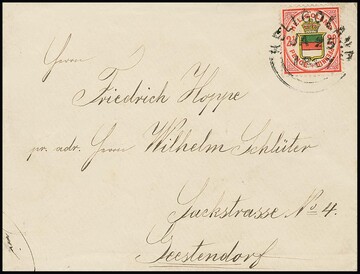 HELIGOLAND
Herrn
Friedrich Hoppe
pr. adr. Herrn Wilhelm Schlüter
Sackstrasse No 4.
Geestendorf